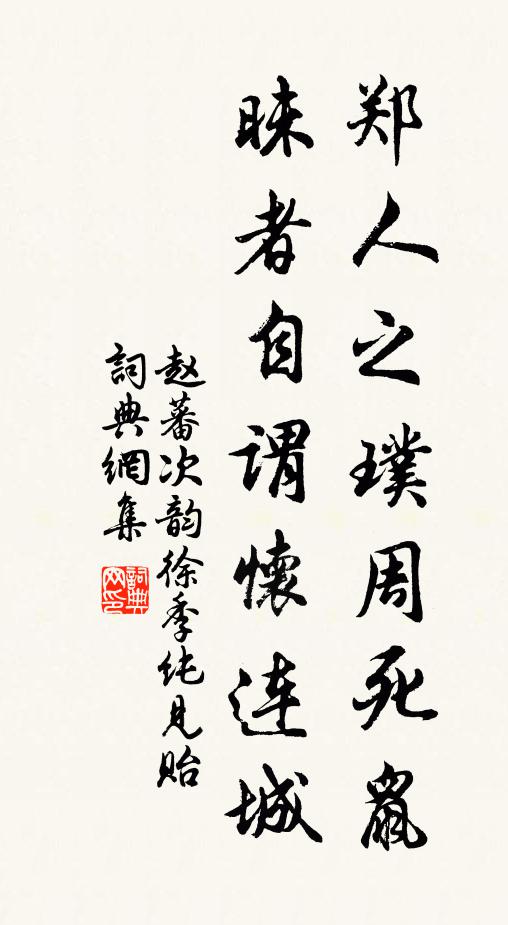 郑人之璞周死鼠
睐者自谓懷连城
赵蕃次韵徐季纯见贻
詞典網集
詞典网印